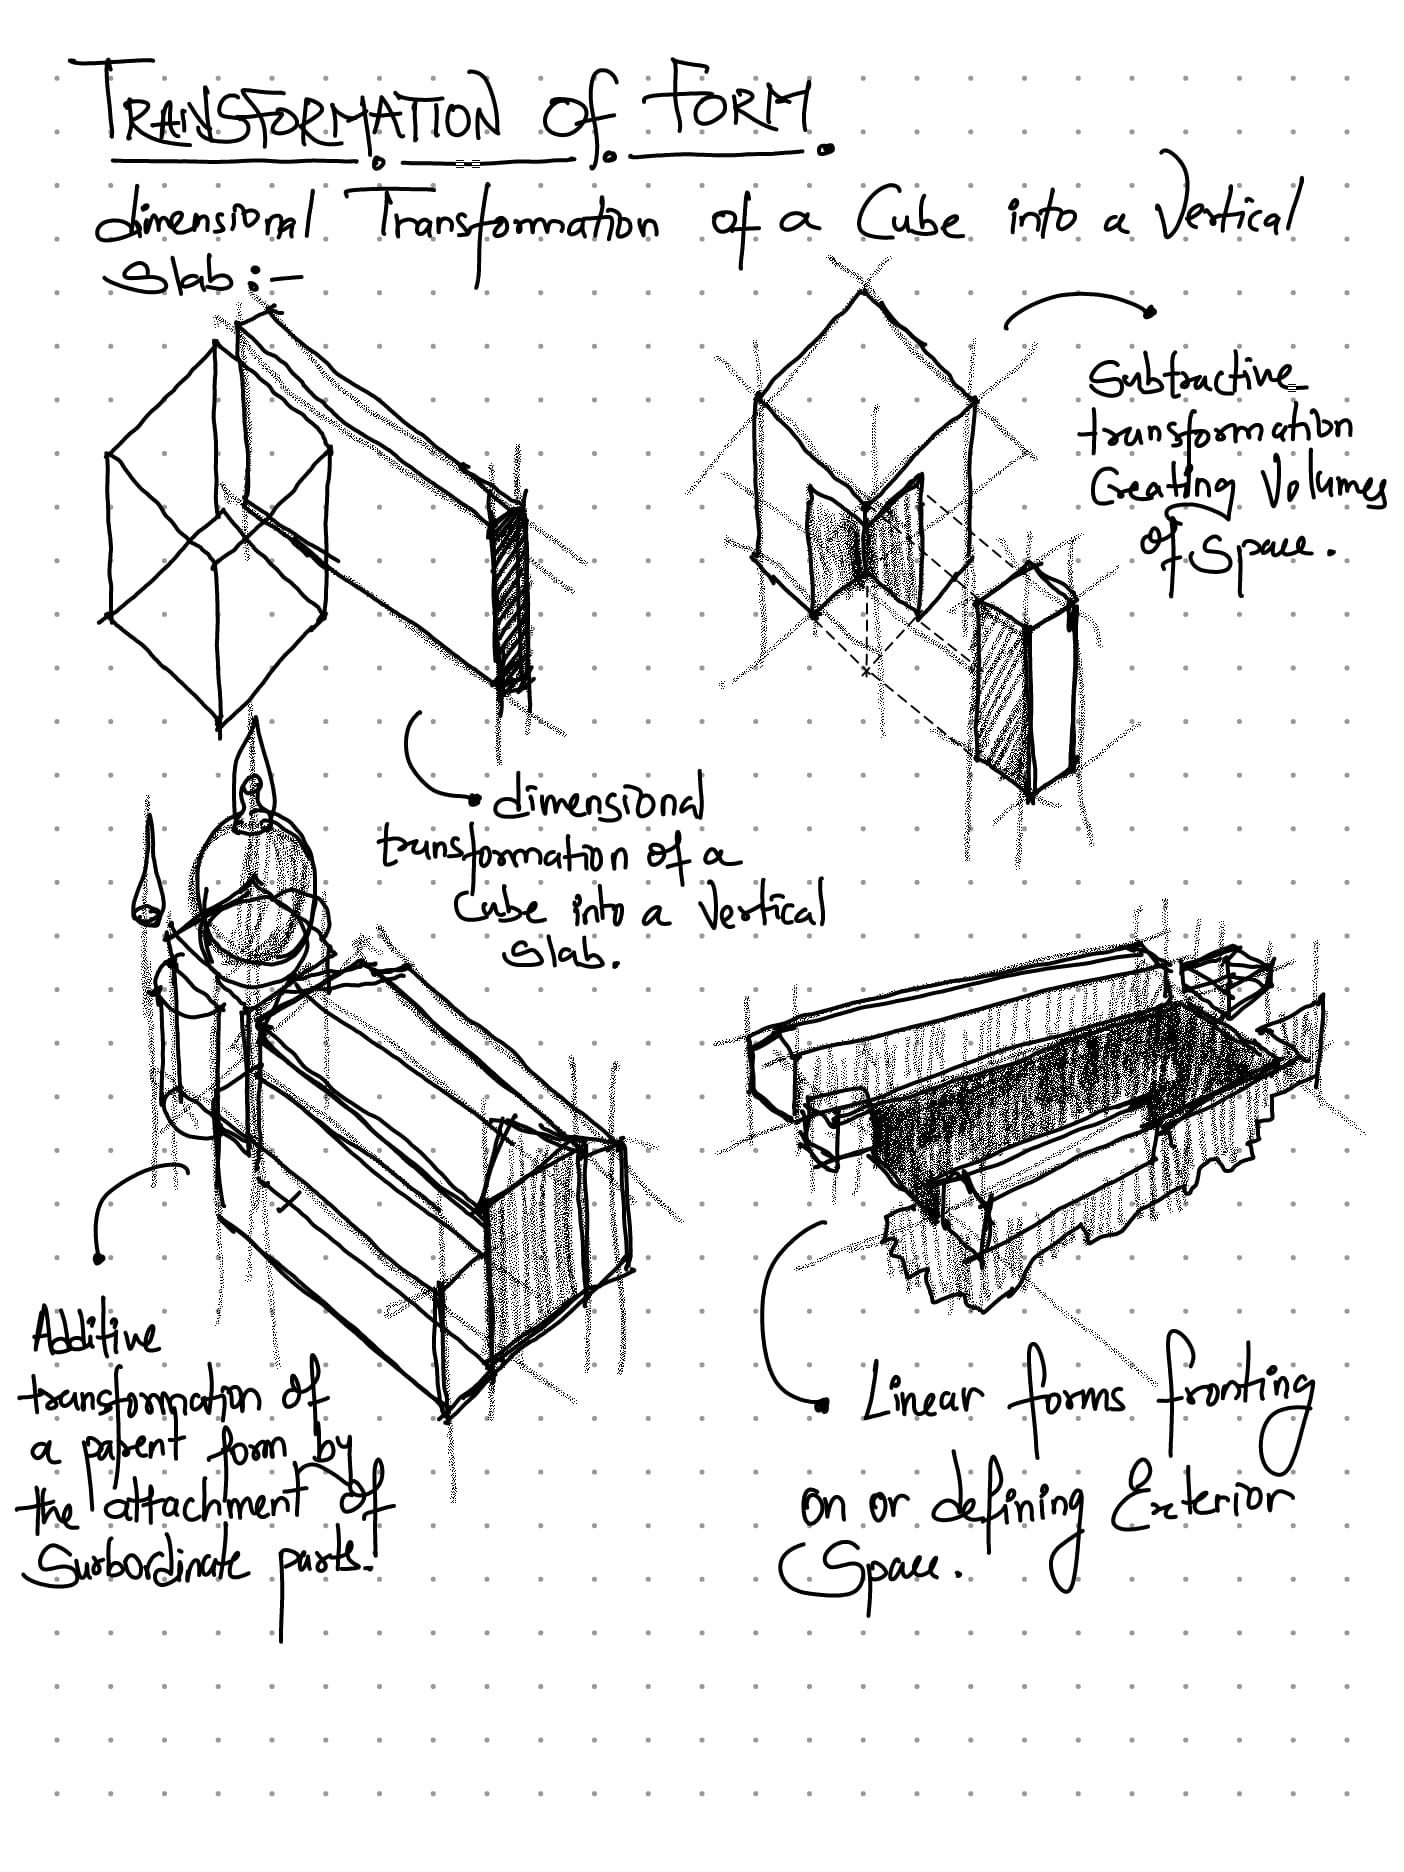 TRANSFORMATION Of FORM.
dimensional Transformation of a Cube into a Vertical
Slab:-
Subtractive
transformation
Creating Volumes
of Space.
dimensional
transformation of a
Cube into a Vertical
Slab.
Additive
transformation of
a parent form by
the attachment of
Surbordinate parts.
Linear forms fronting
on or defining Exterior
Space.